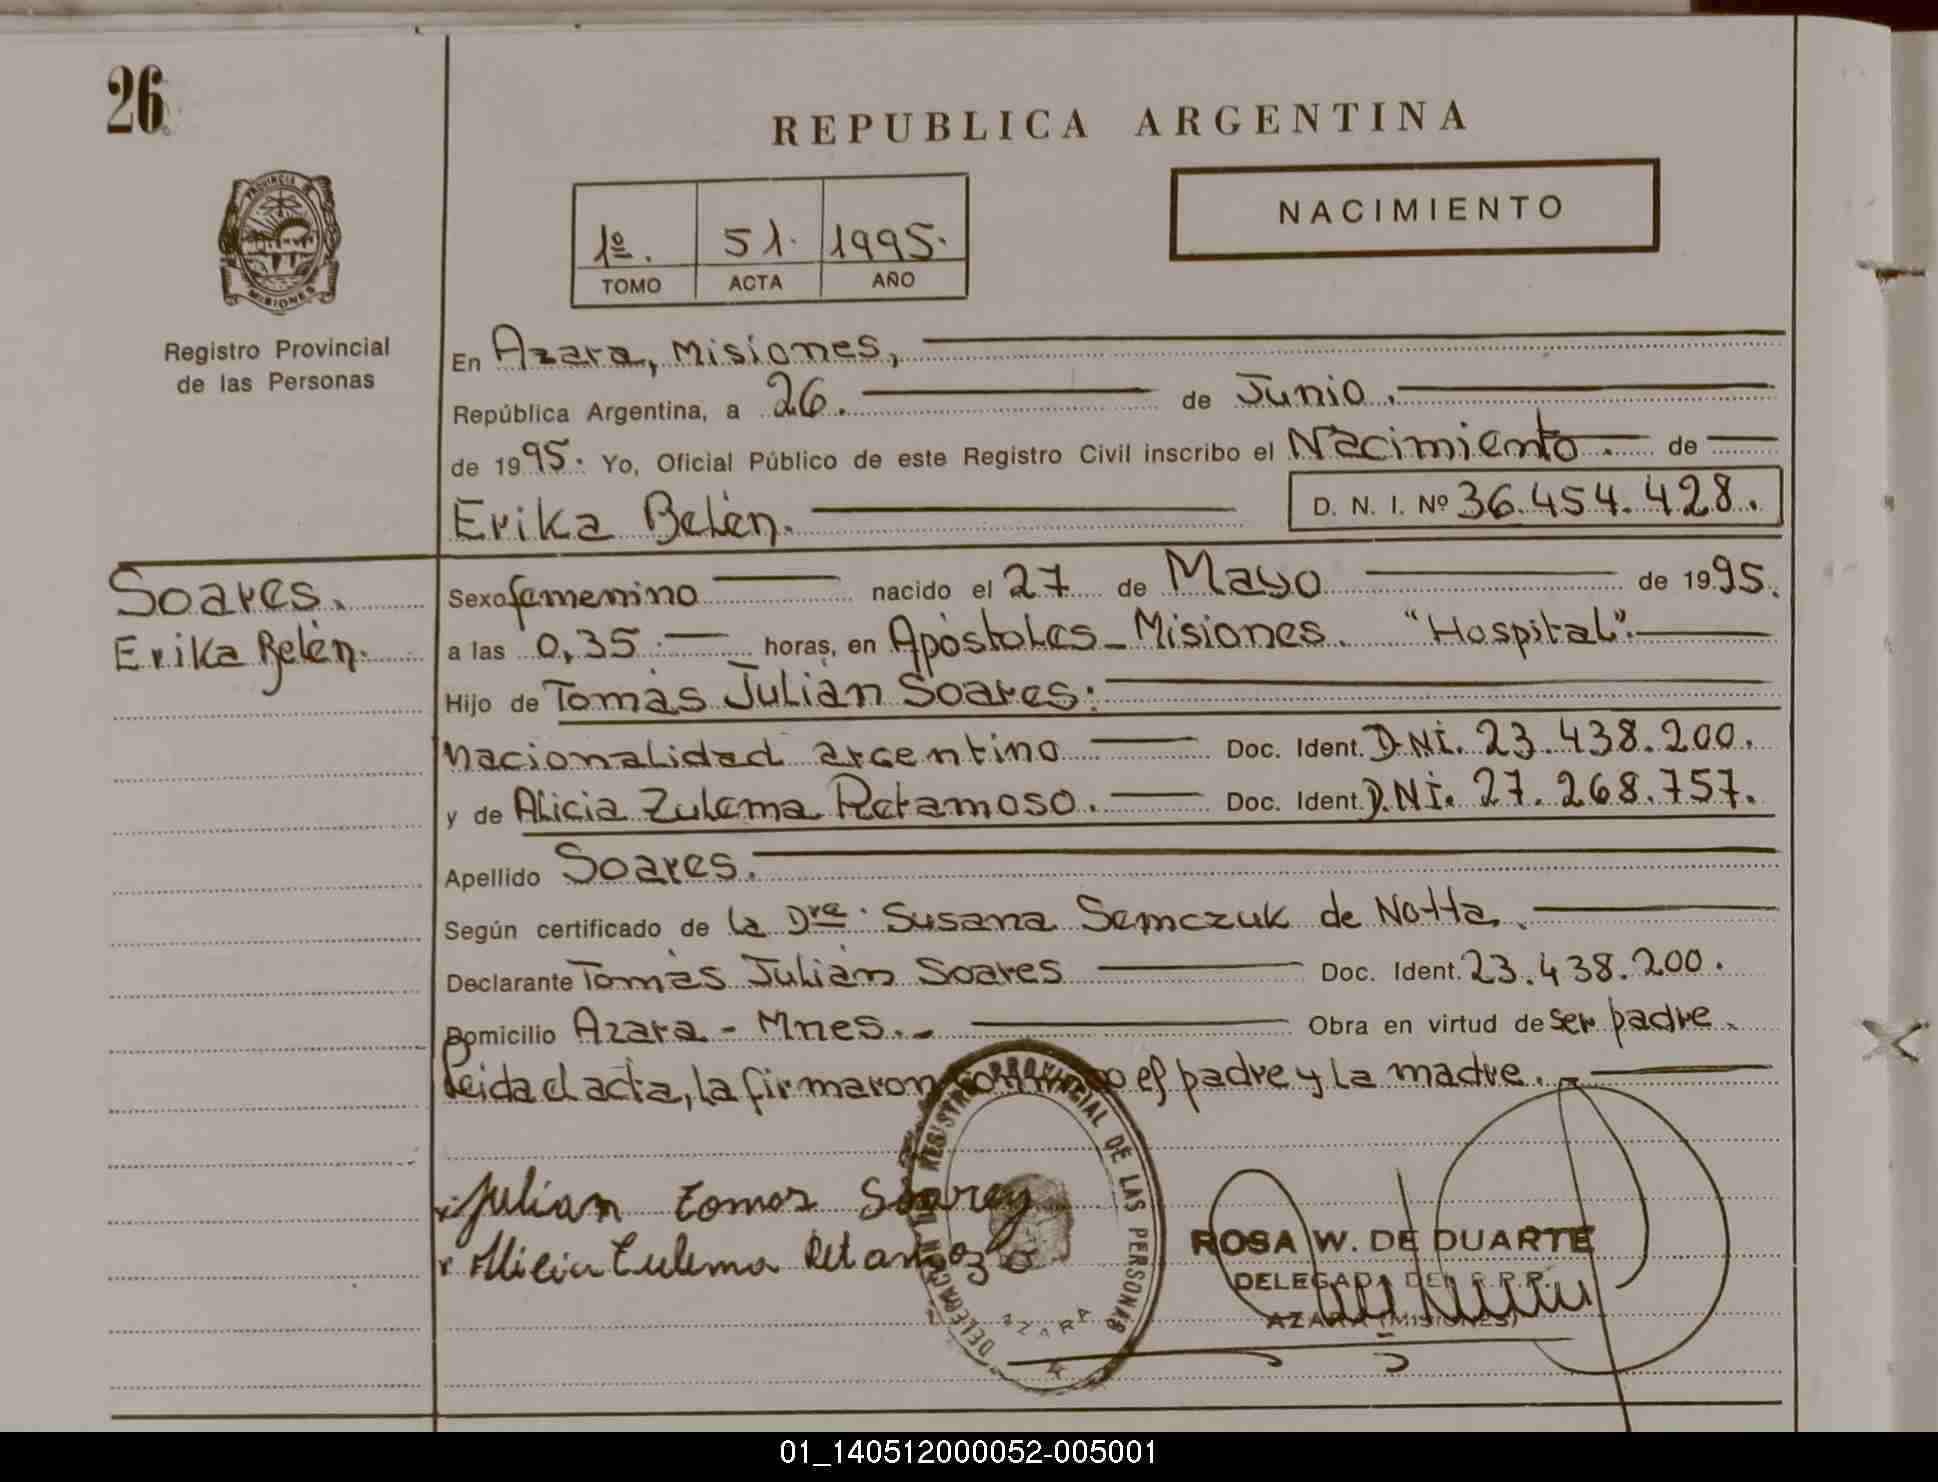 26
REPUBLICA ARGENTINA
PROVINCIA
MISIONES
Registro Provincial
de las Personas
1º. 51. 1995.
TOMO ACTA AÑO
NACIMIENTO
En Azara, Misiones,
República Argentina, a 26. de Junio.
de 1995. Yo, Oficial Público de este Registro Civil inscribo el Nacimiento. de
Erika Belén. D. N. I. Nº 36.454.428.
Soares.
Erika Belén.
Sexo femenino nacido el 27 de Mayo de 1995.
a las 0,35 horas, en Apóstoles - Misiones. "Hospital".
Hijo de Tomás Julián Soares.
nacionalidad argentino Doc. Ident. D.NI. 23.438.200.
y de Alicia Zulema Retamoso. Doc. Ident. D.NI. 27.268.757.
Apellido Soares.
Según certificado de la Dra. Susana Semczuk de Notta.
Declarante Tomás Julián Soares Doc. Ident. 23.438.200.
Domicilio Azara - Mnes. - Obra en virtud de ser padre.
Leida el acta, la firmaron conmigo el padre y la madre.
Julian tomas Soarez
Alicia Culema Retamozo
DELEGACION DEL REGISTRO PROVINCIAL DE LAS PERSONAS
AZARA
ROSA W. DE DUARTE
DELEGADA DEL R.P.P.
AZARA (MISIONES)
01_140512000052-005001